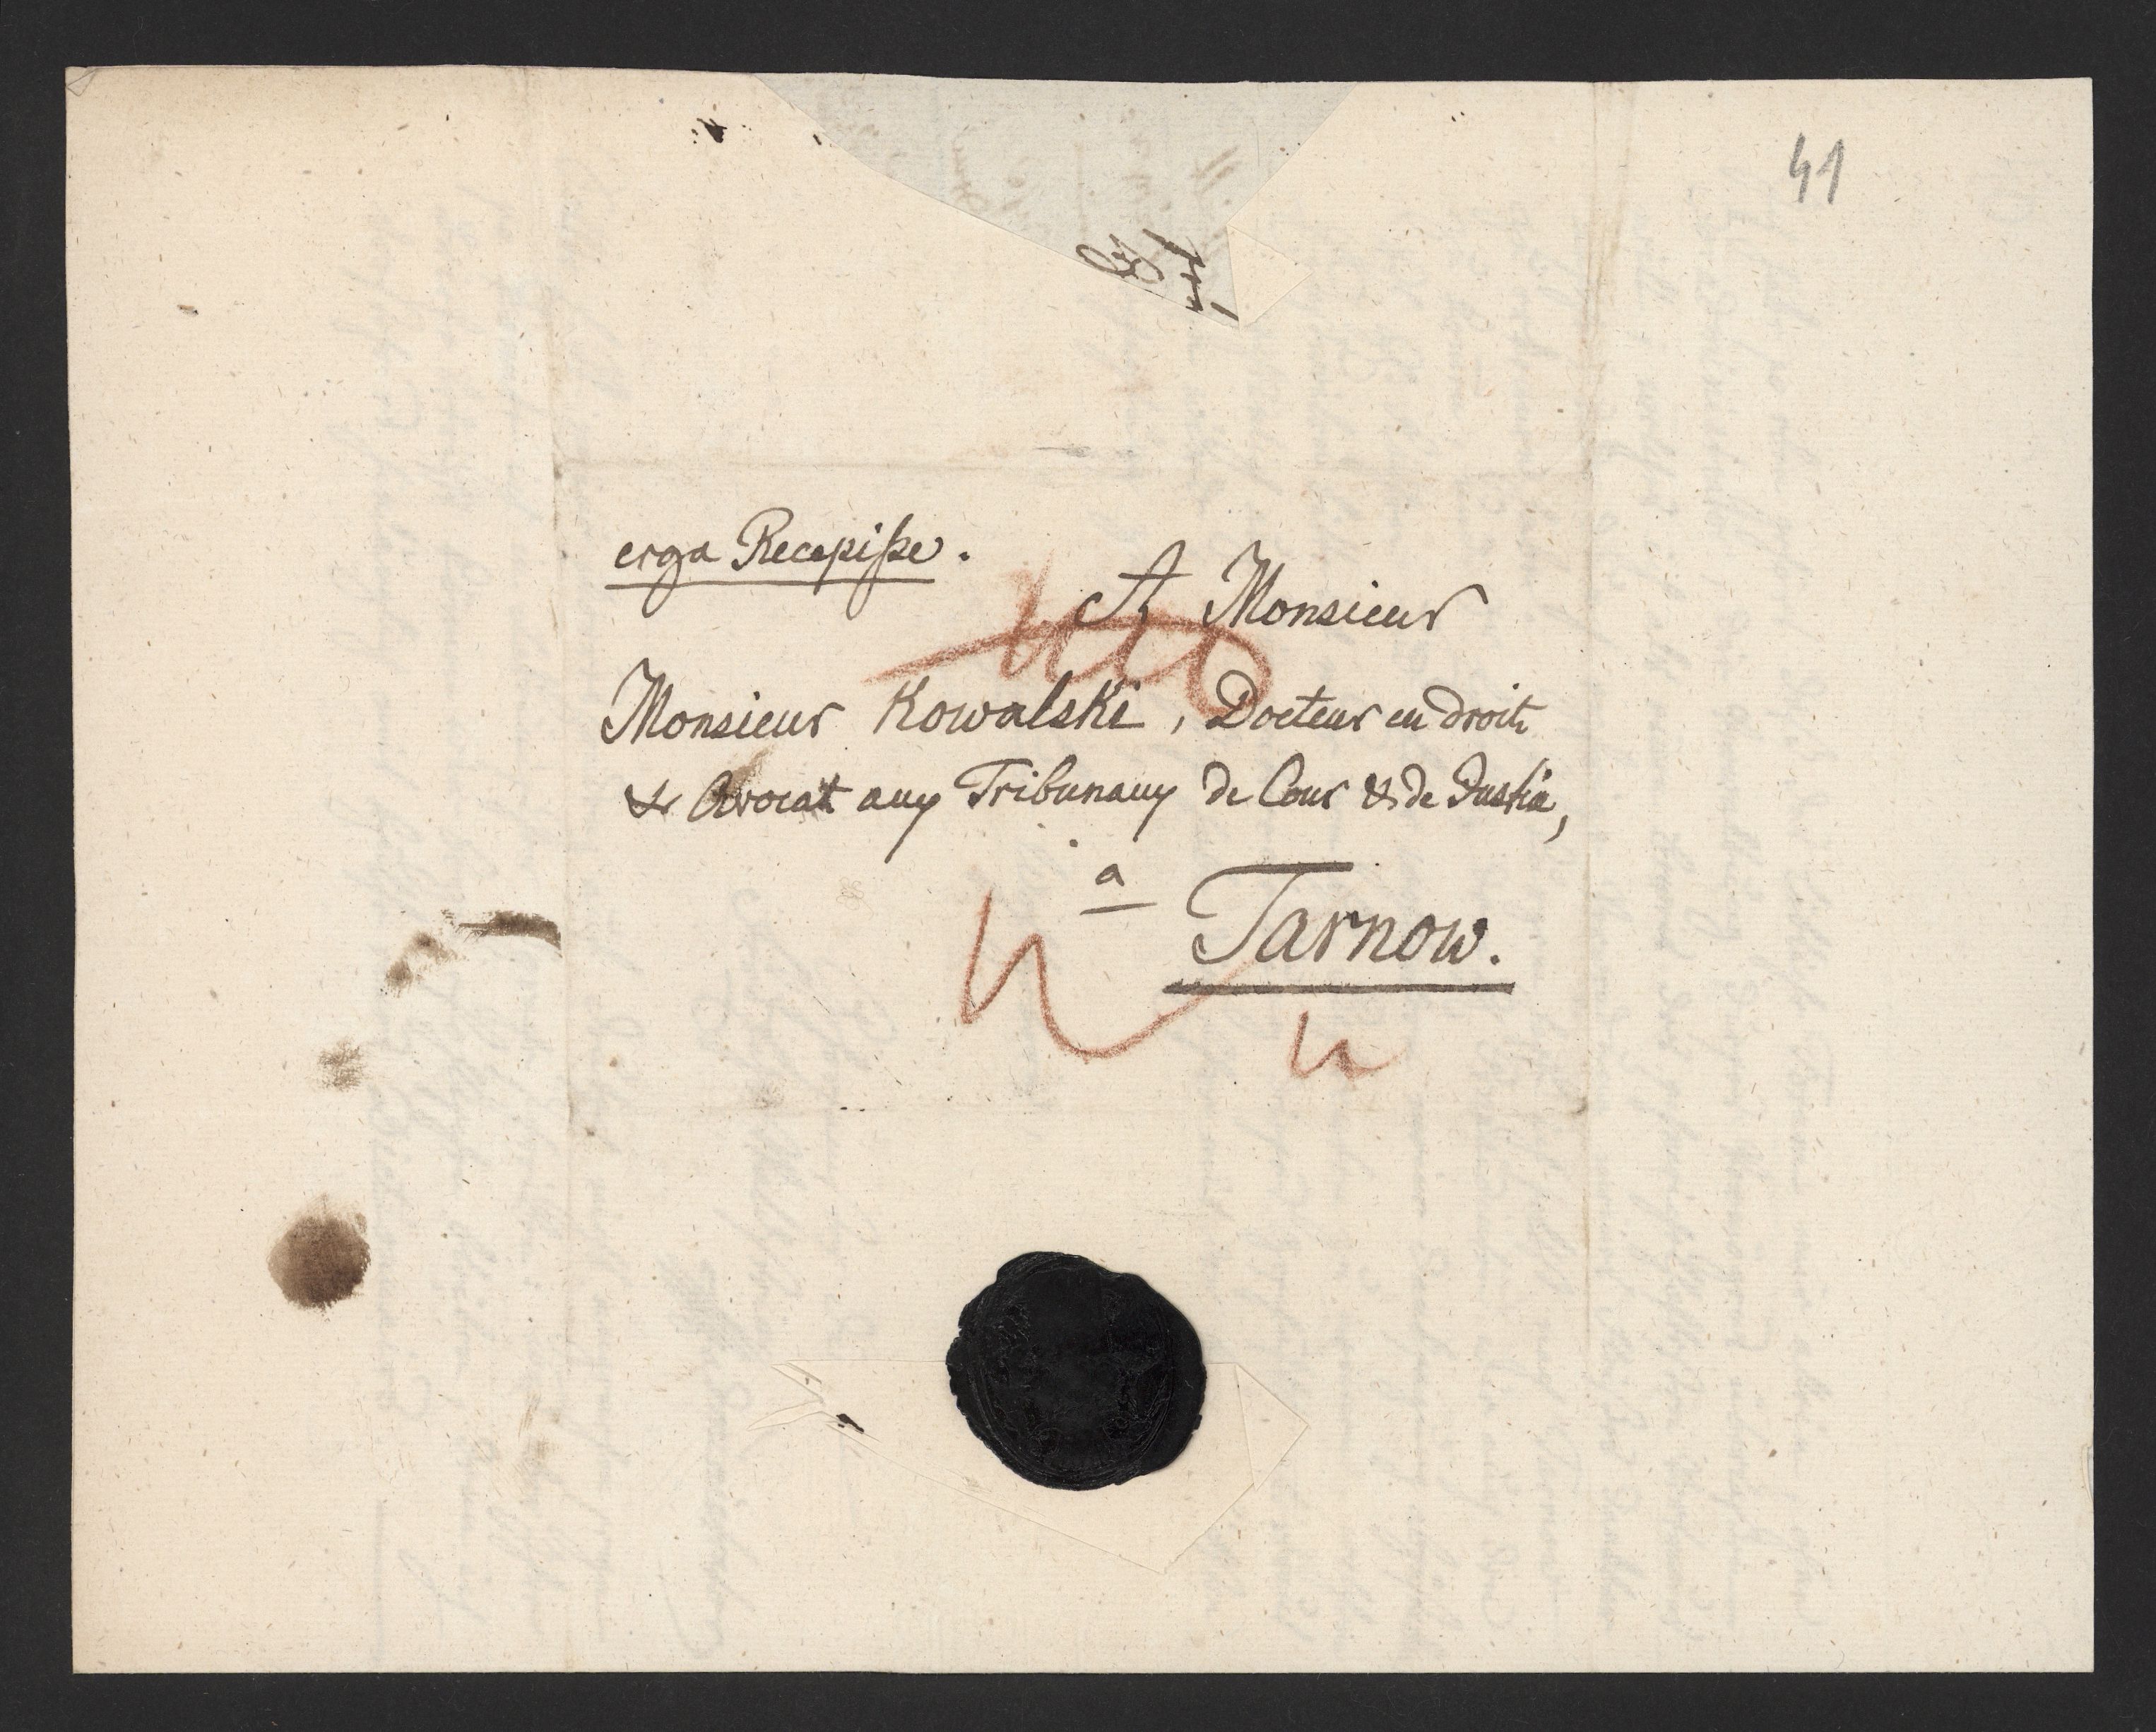 41
erga Recepiße.
A Monsieur
Monsieur Kowalski, Docteur en droit
& Avocat aux Tribunaux de Cour & de Justice,
a
Tarnow.